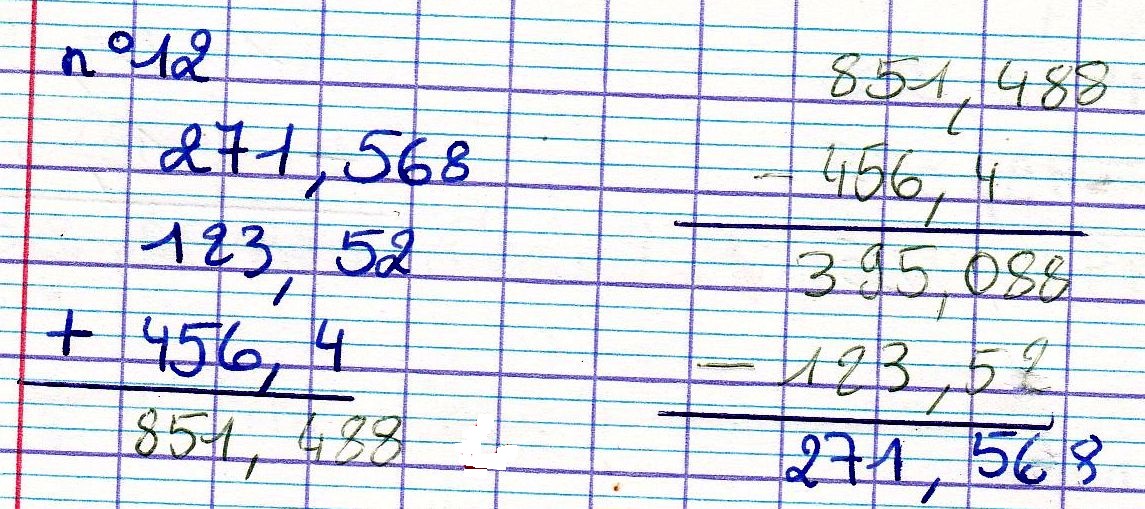 n° 12
271,568
123,52
+ 456,4
851,488
851,488
- 456,4
395,088
- 123,52
271,568